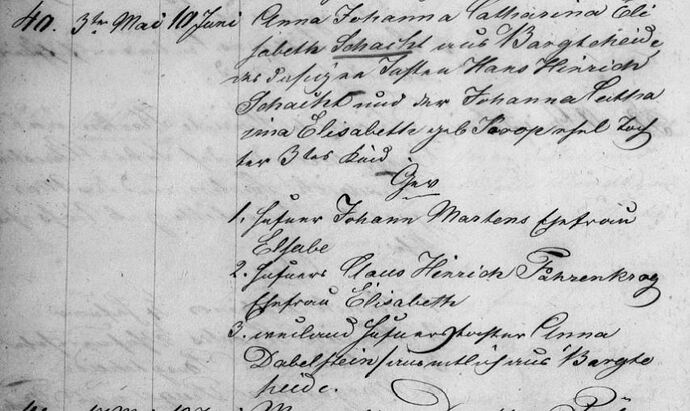 40. 3ten Mai 10 Juni Anna Johanna Catharina Eli
sabeth Schacht aus Bargteheide,
des dasigen Insten Hans Hinrich
Schacht und der Johanna Catha
rina Elisabeth geb toch
ter 3tes Kind
Gev
1. Hufner Johann Martens Ehefrau
Elsabe
2. Hufners Claus Hinrich Fahrenkrog
Ehefrau Elisabeth
3. weiland Hufners tochter Anna
Dabelstein sämtlich aus Bargte
heide.